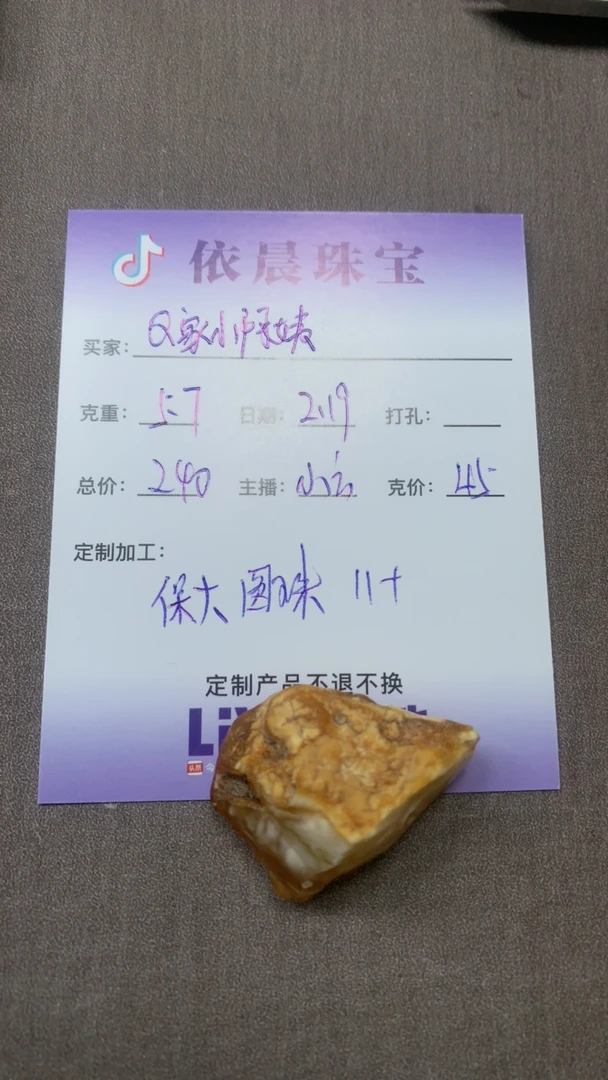 依晨珠宝
买家:
克重: 5.7 日期: 2.19 打孔:
总价: 240 主播: 小云 克价: 45
定制加工:
保大圆珠 11+
定制产品不退不换